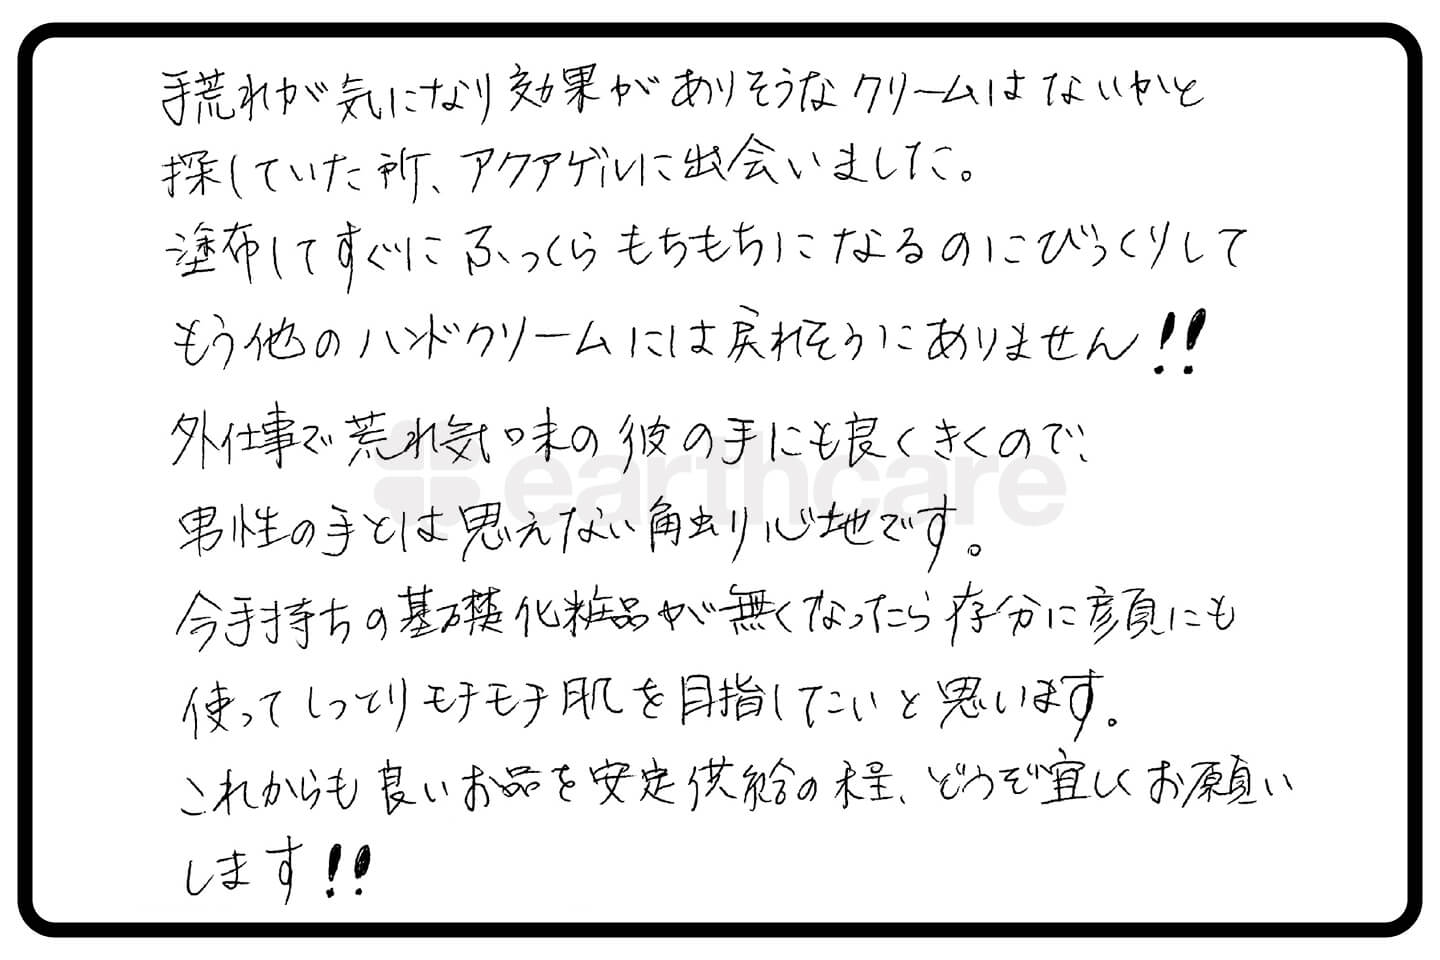 手荒れが気になり効果がありそうなクリームはないかと
探していた所、アクアゲルに出会いました。
塗布してすぐにふっくらもちもちになるのにびっくりして
もう他のハンドクリームには戻れそうにありません!!
外仕事で荒れ気味の彼の手にも良くきくので、
earthcare
男性の手とは思えない触り心地です。
今手持ちの基礎化粧品が無くなったら存分に顔にも
使ってしっとりモチモチ肌を目指したいと思います。
これからも良いお品を安定供給の程、どうぞ宜しくお願い
します!!